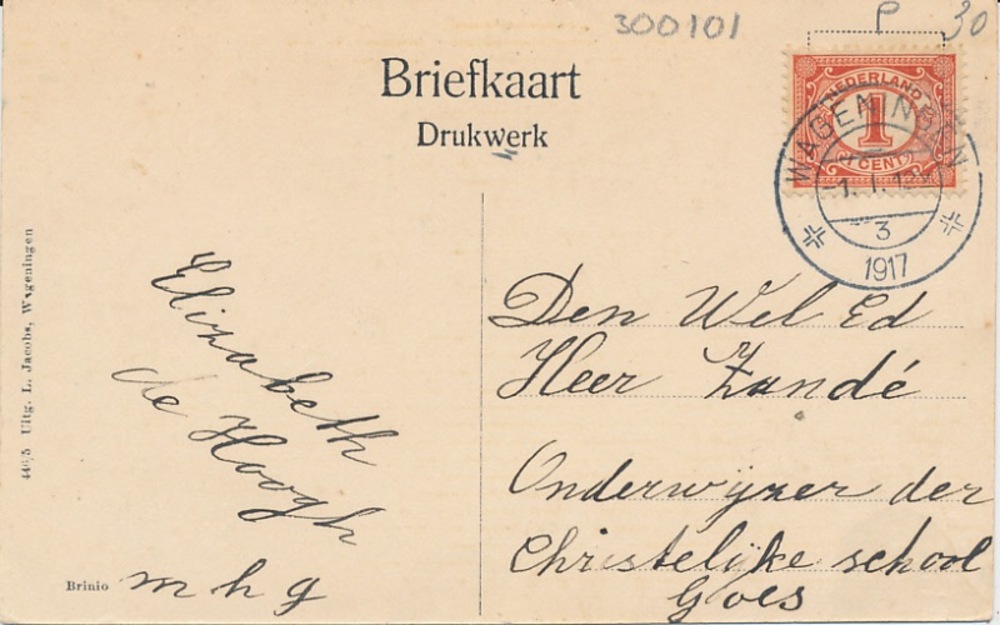 300101
P 30
Briefkaart
Drukwerk
NEDERLAND
1
1 CENT
WAGENINGEN
3
1917
446/5 Uitg. L. Jacobs, Wageningen
Elizabeth
de Hoogh
m h g
Brinio
Den Wel Ed
Heer Zandé
Onderwijzer der
Christelijke school
Goes